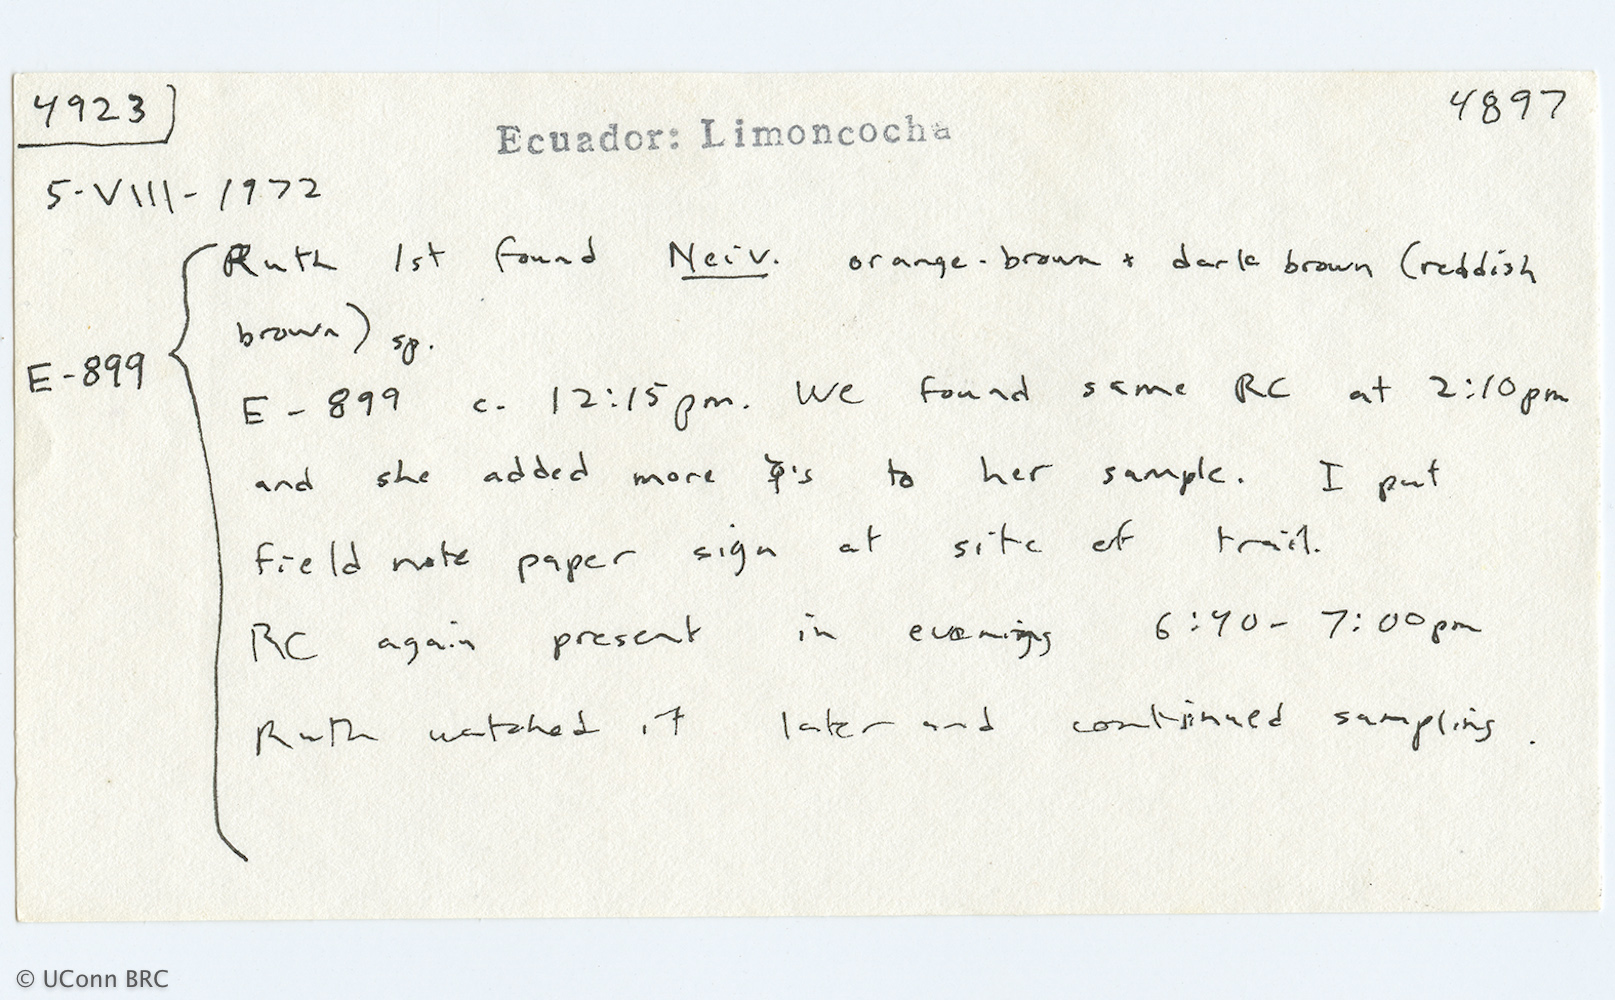 4923
Ecuador: Limoncocha
4897
5-VIII-1972
Ruth 1st found Neiv. orange-brown + dark brown (reddish
brown) sp.
E-899
E-899 c. 12:15pm. We found same RC at 2:10pm
and she added more ☿'s to her sample. I put
field note paper sign at site of trail.
RC again present in evening 6:40-7:00pm
Ruth watched it later and continued sampling.
© UConn BRC